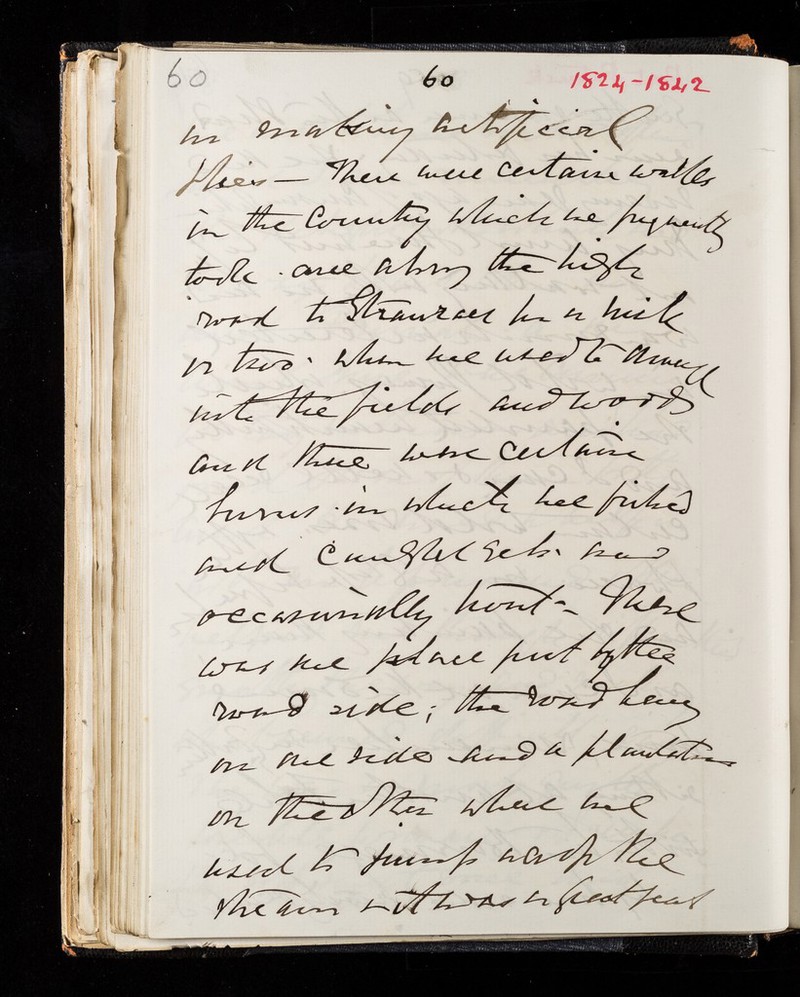 60 60 1824-1842
in making artificial
flies — There were certain walks
in the country which we frequently
took. one along the high
road to Stranraer for a mile
or two. when we used to
into the fields and woods
and there were certain
burns in which we fished
and caught eels and
occasionally trout - There
was one place just by the
road side; the road being
on one side and a plantation
on the other where we
used to jump across the
stream it was a great feat